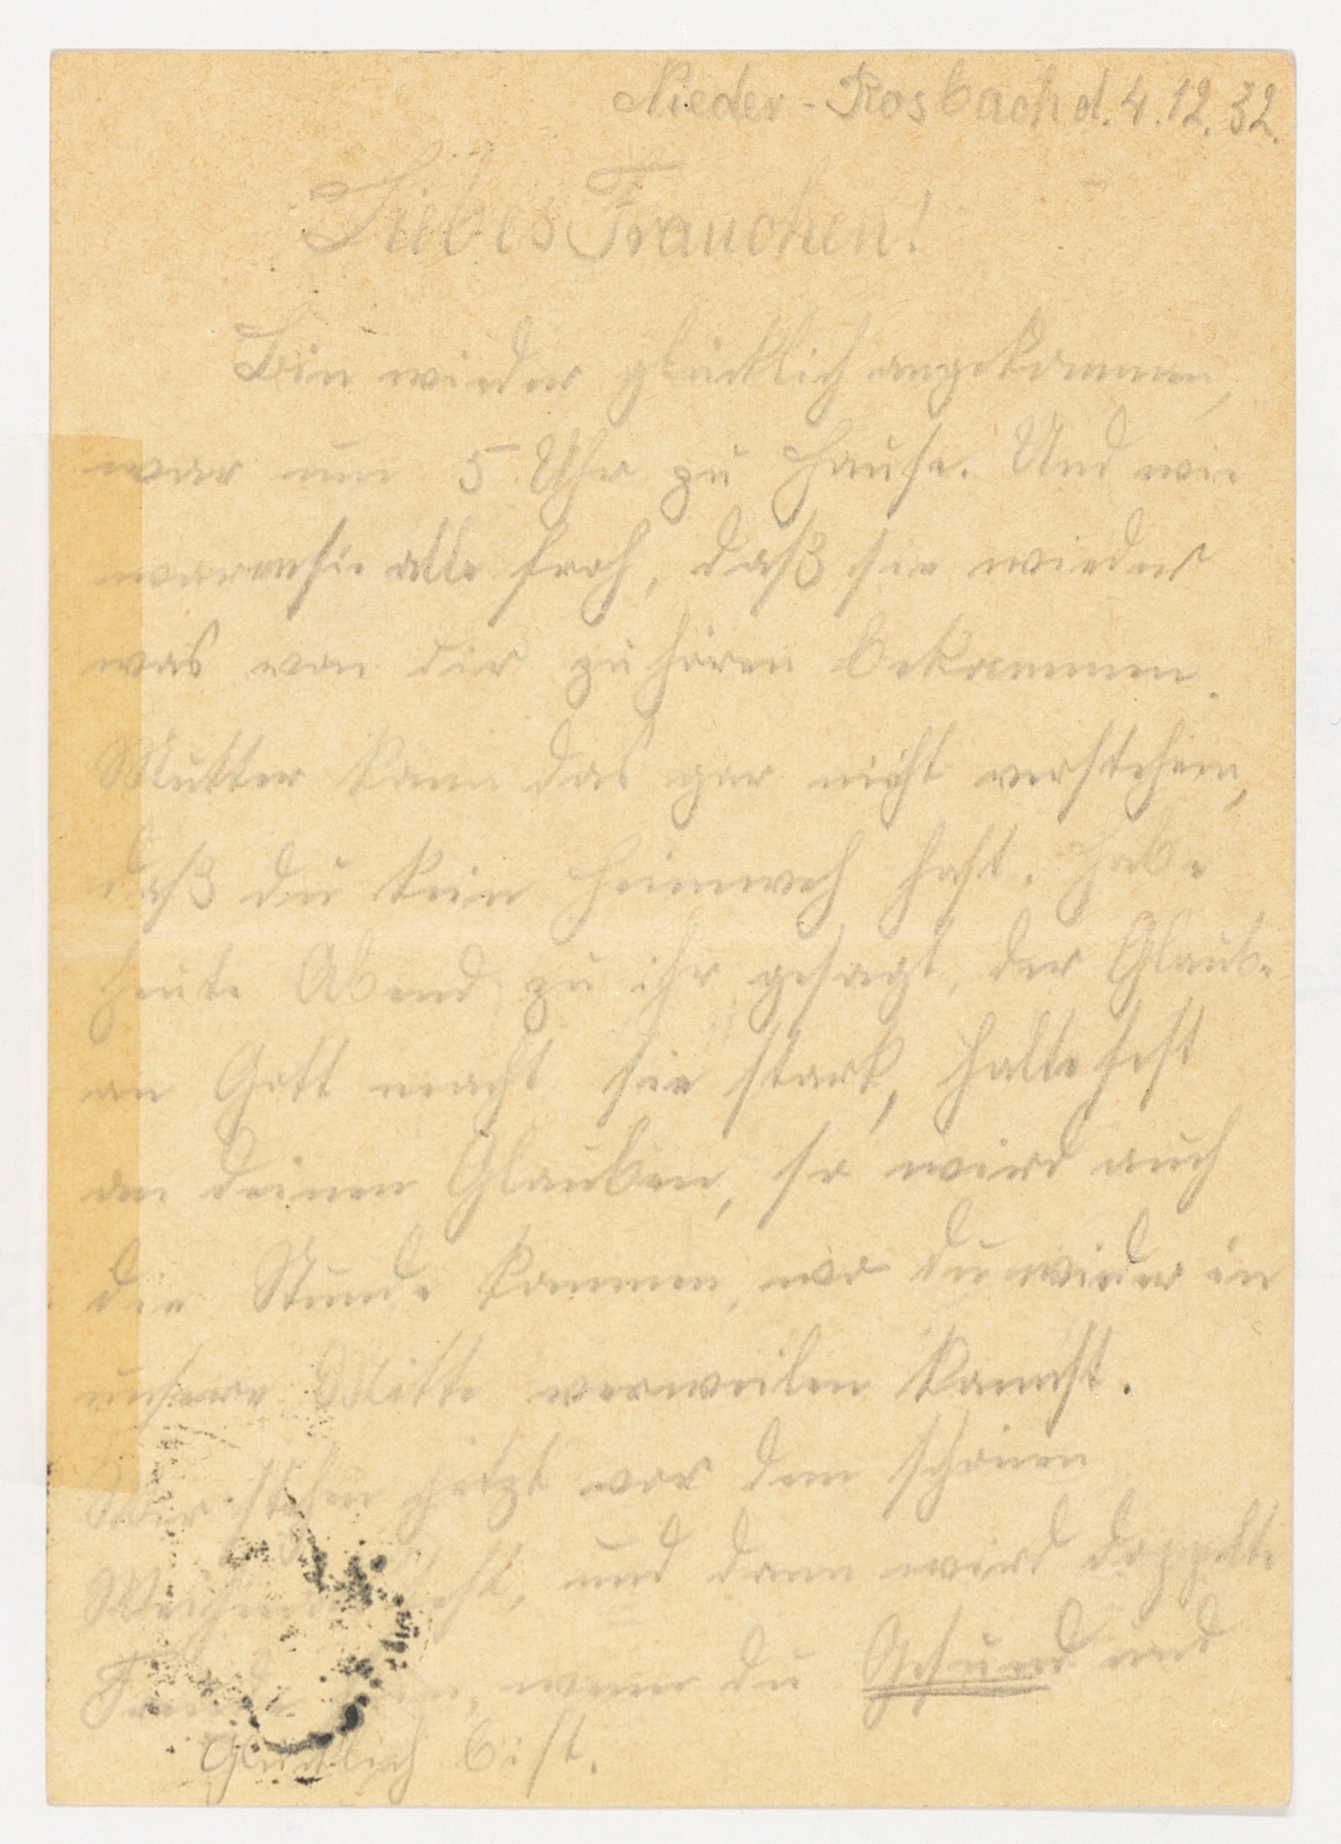 Nieder-Rosbach d. 4.12.32.
Liebes Frauchen!
Bin wieder glücklich angekommen,
war um 5 Uhr zu Hause. Und wie
waren sie alle froh, daß sie wieder
was von dir zu hören bekammen.
Mutter kann das gar nicht verstehen,
daß du kein Heimweh hast. Habe
heute Abend zu ihr gesagt, der Glaube
an Gott macht sie stark, halte fest
an deinen Glauben, so wird auch
die Stunde kommen, wo du wieder in
unsere Mitte verweilen kannst.
Wir stehen jetzt vor dem schönen
und dann wird doppelte
Freude wenn du Gesund und
Glücklich bist.